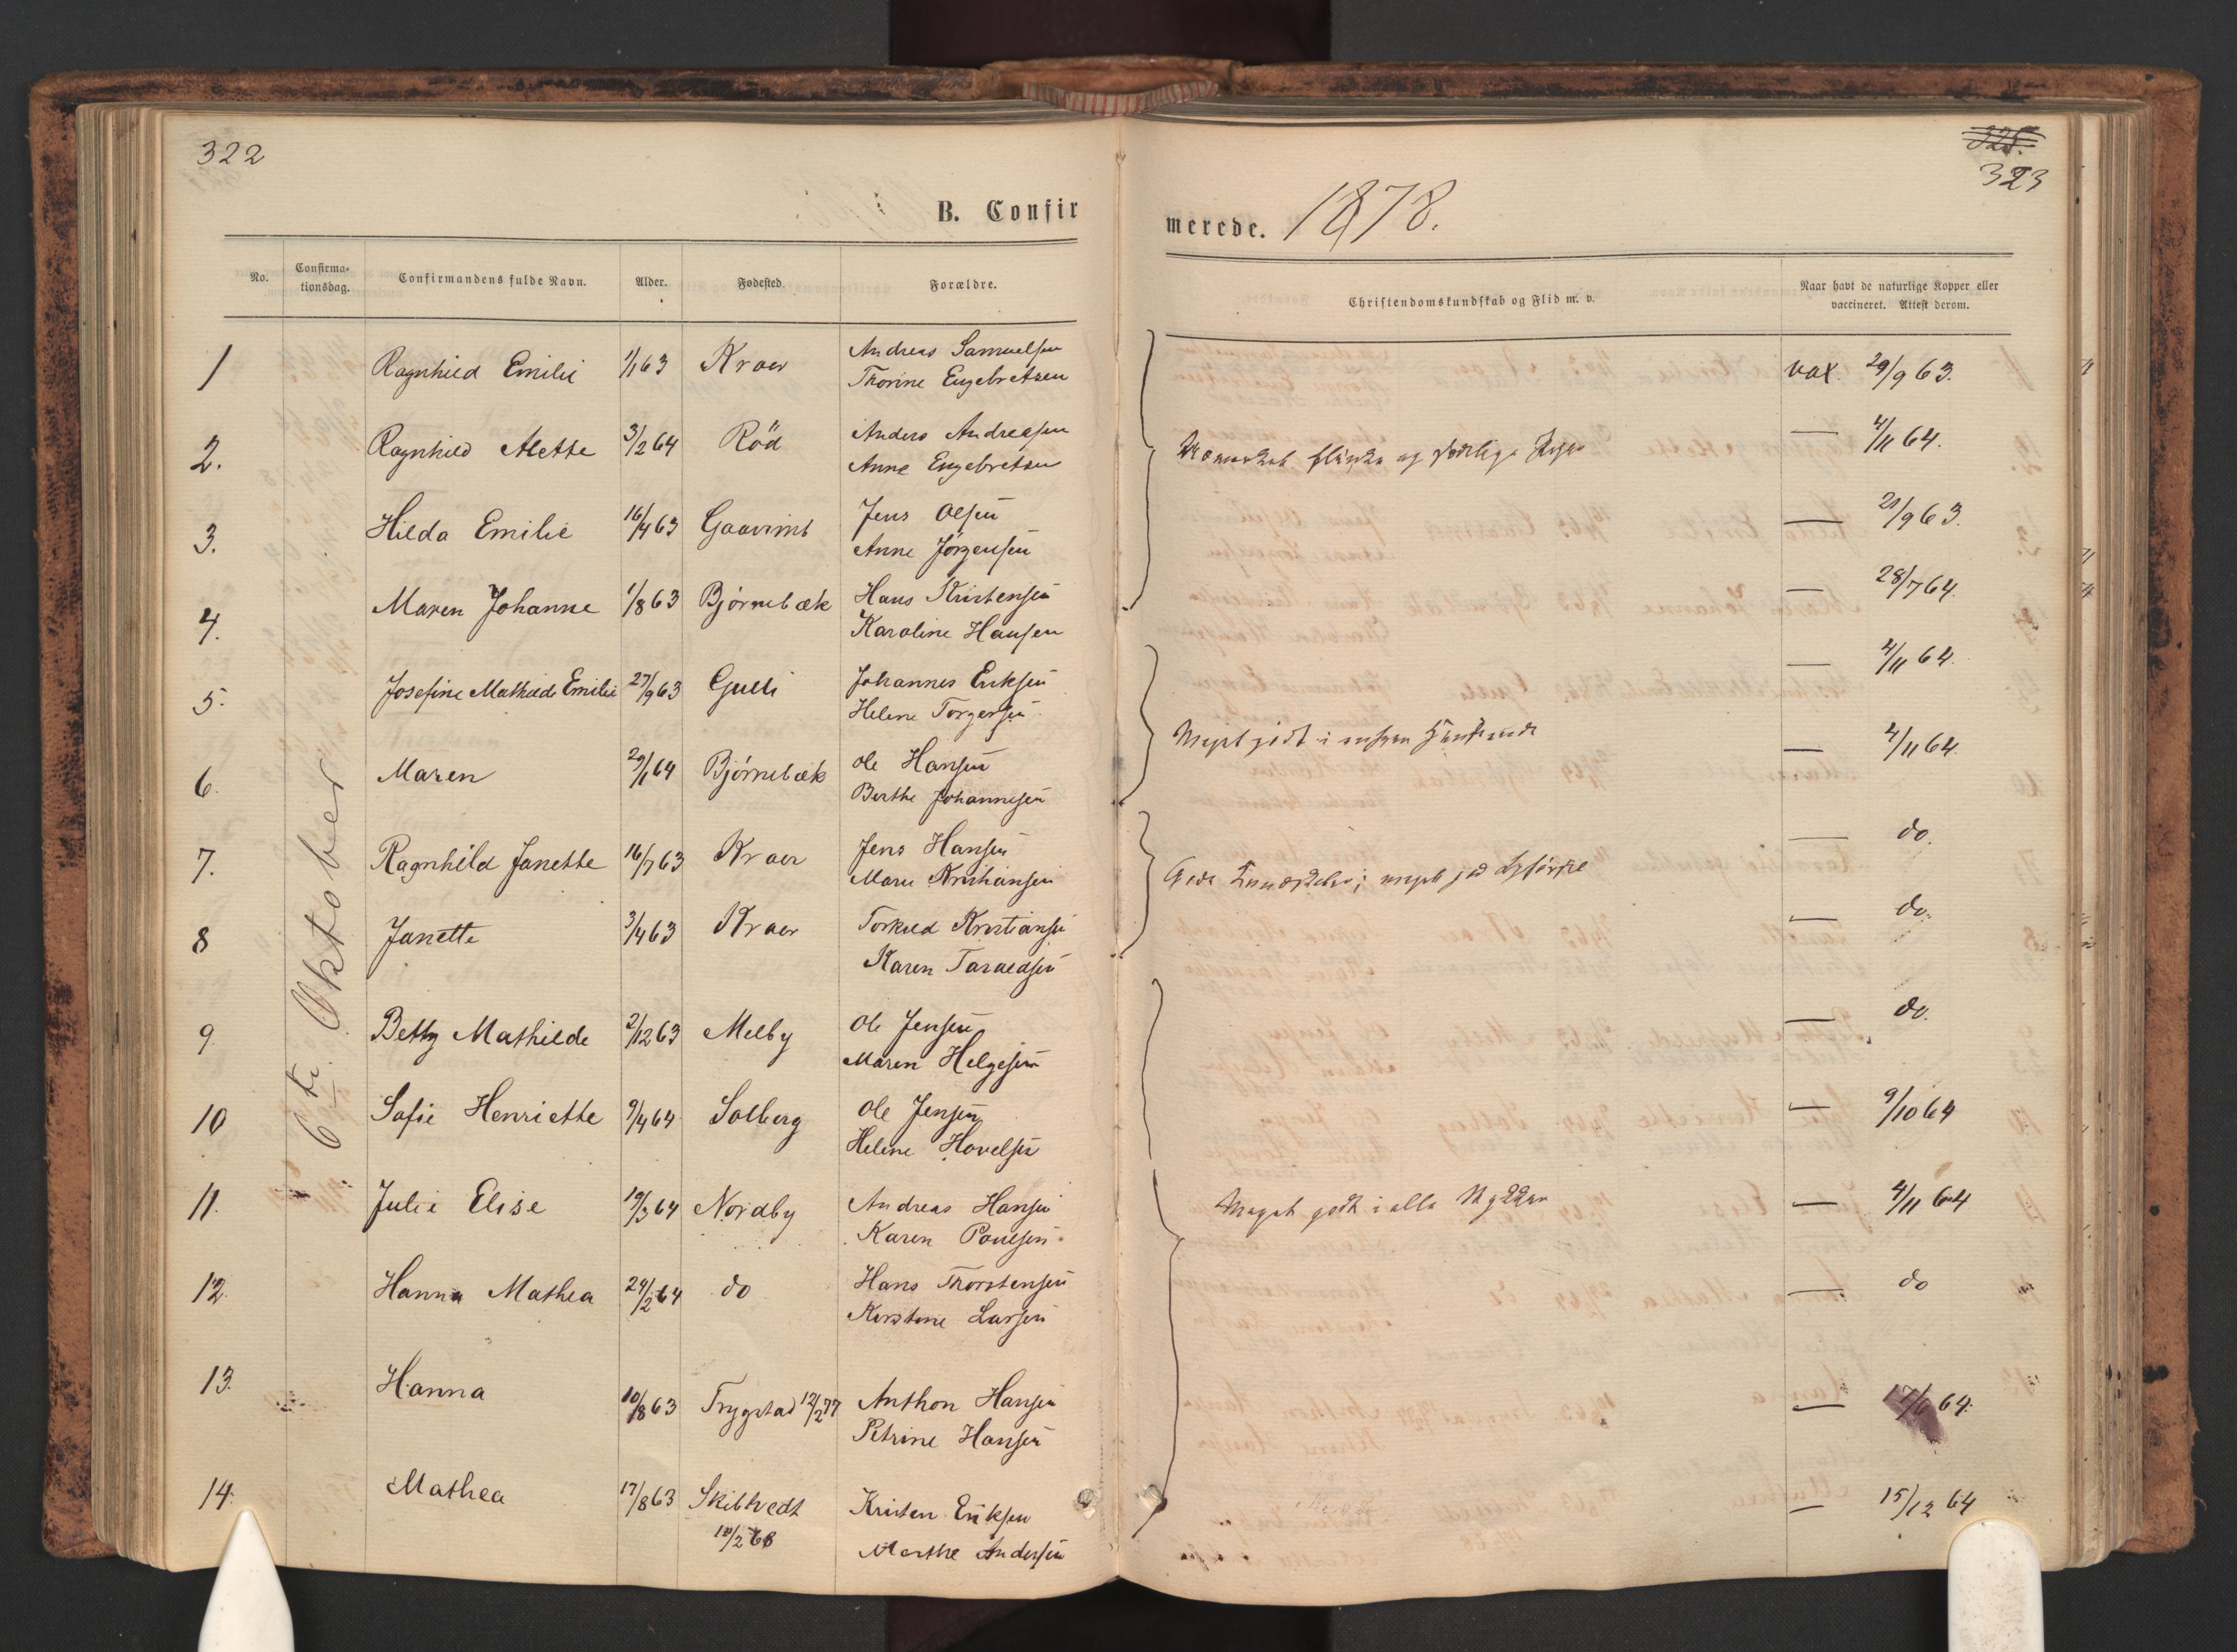 322
B. Confir
No. Confirma-tionsdag. Confirmandens fulde Navn. Alder. Fødested. Forældre.
1 Ragnhild Emilie 1/1 63 Kraer Andreas Samuelsen
Thorine Engebretsen
2. Ragnhild Alette 3/2 64 Röd Anders Andreasen
Anne Engebretsen
3. Hilda Emilie 16/4 63 Jens Olsen
Anne Jørgensen
4. Maren Johanne 1/8 63 Bjørnebæk Hans Kristensen
Karoline Hansen
5. Josefine Mathilde Emilie 27/9 63 Gulli Johannes Eriksen
Helene Torgersen
6. Maren 29/1 64 Bjørnebæk Ole Hansen
Berthe Johannesen
7. Ragnhild Janette 16/7 63 Kraer Jens Hansen
Maren Kristiansen
8 Janette 3/4 63 Kraer Torkild Kristiansen
Karen Taraldsen
9. Betty Mathilde 2/12 63 Melby Ole Jensen
Maren Helgesen
10 Sofie Henriette 9/4 64 Solberg Ole Jensen
Helene Hovelsen
11. Julie Elise 19/3 64 Nordby Andreas Hansen
Karen Poulsen
12. Hanna Mathea 24/2 64 do Hans Thorstensen
Kirstine Larsen
13. Hanna 10/8 63 Trygstad 12/2 77 Anthon Hansen
Petrine Hansen
14. Mathea 17/8 63 Skibtvedt Kristen Eriksen
10/2 68 Marthe Andersen
6te Oktober
325.
323
merede. 1878.
Christendomskundskab og Flid m. v. Naar havt de naturlige Kopper eller vaccineret. Attest derom.
vax. 29/9 63.
— 4/11 64.
flinke og
— 21/9 63.
— 28/7 64.
— 4/11 64.
Meget godt i enhver Henseende
— 4/11 64.
— do.
Gode Kundskaber; meget god Opførsel
— do.
— do.
— 9/10 64
— 4/11 64
Meget godt i alle Stykker
— do
— 17/6 64.
— 15/12 64